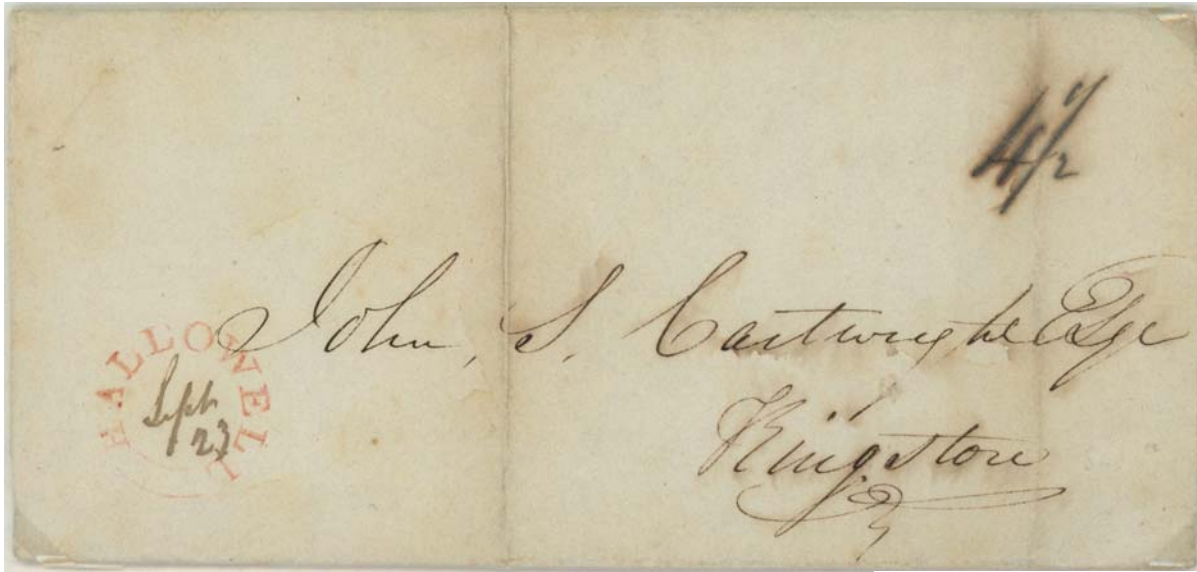 4½
John, S. Cartwright Esqr
Kingston
HALLOWELL
Sept
23